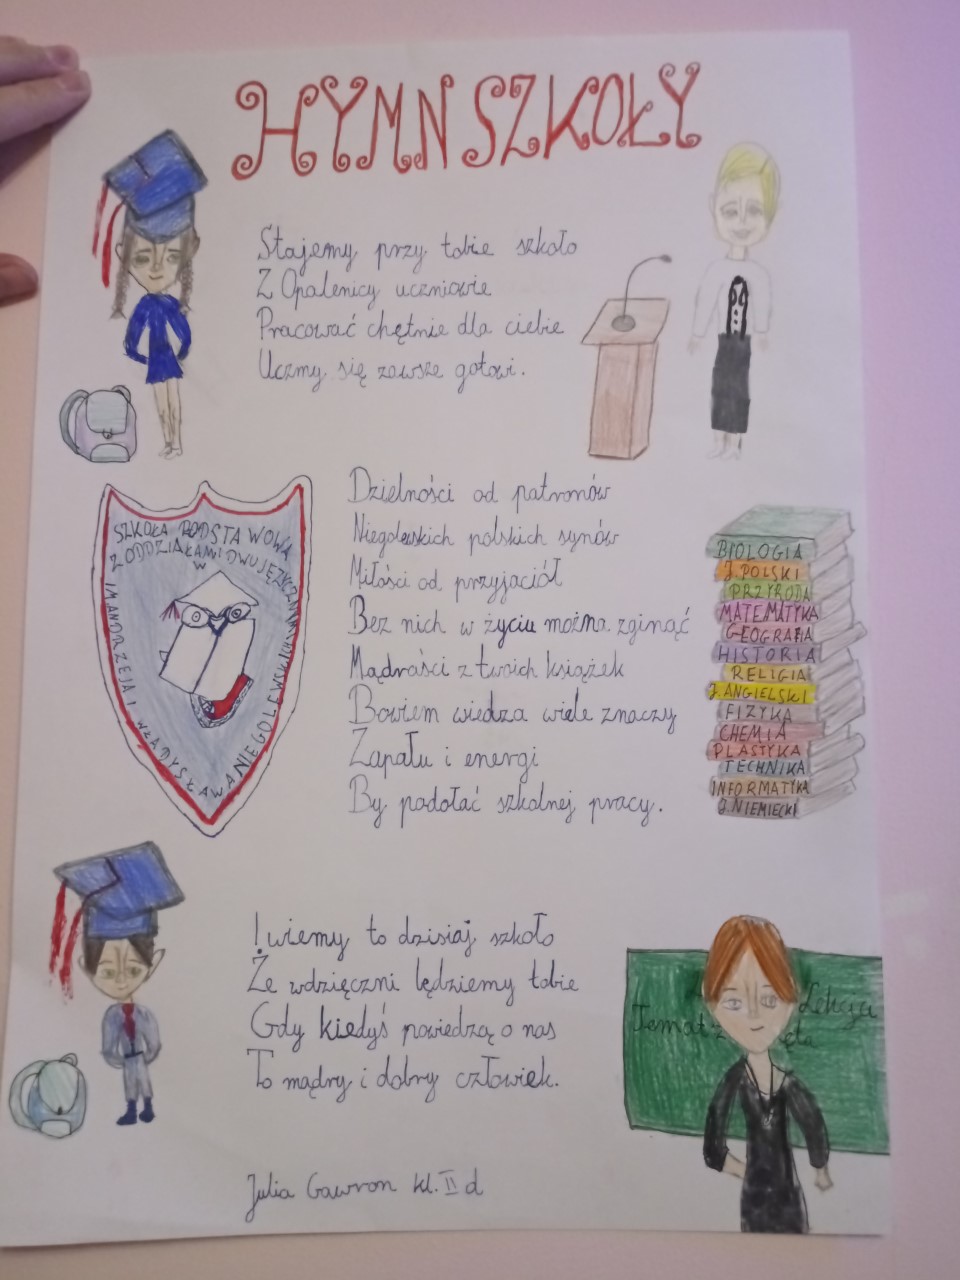 HYMN SZKOŁY
Stajemy przy tobie szkoło
Z Opalenicy uczniowie
Pracować chętnie dla ciebie
Uczmy się zawsze gotowi.
SZKOŁA PODSTAWOWA
Z ODDZIAŁAMI DWUJĘZYCZNYMI
W
IM ANDRZEJA I WŁADYSŁAWA NIEGOLEWSKICH
Dzielności od patronów
Niegolewskich polskich synów
Miłości od przyjaciół
Bez nich w życiu można zginąć
Mądrości z twoich książek
Bowiem wiedza wiele znaczy
Zapału i energi
By podołać szkolnej pracy.
BIOLOGIA
J. POLSKI
PRZYRODA
MATEMATYKA
GEOGRAFIA
HISTORIA
RELIGIA
J. ANGIELSKI
FIZYKA
CHEMIA
PLASTYKA
TECHNIKA
INFORMATYKA
J. NIEMIECKI
I wiemy to dzisiaj szkoło
Że wdzięczni będziemy tobie
Gdy kiedyś powiedzą o nas
To mądry i dobry człowiek.
Lekcja
Temat
Julia Gawron kl. II d